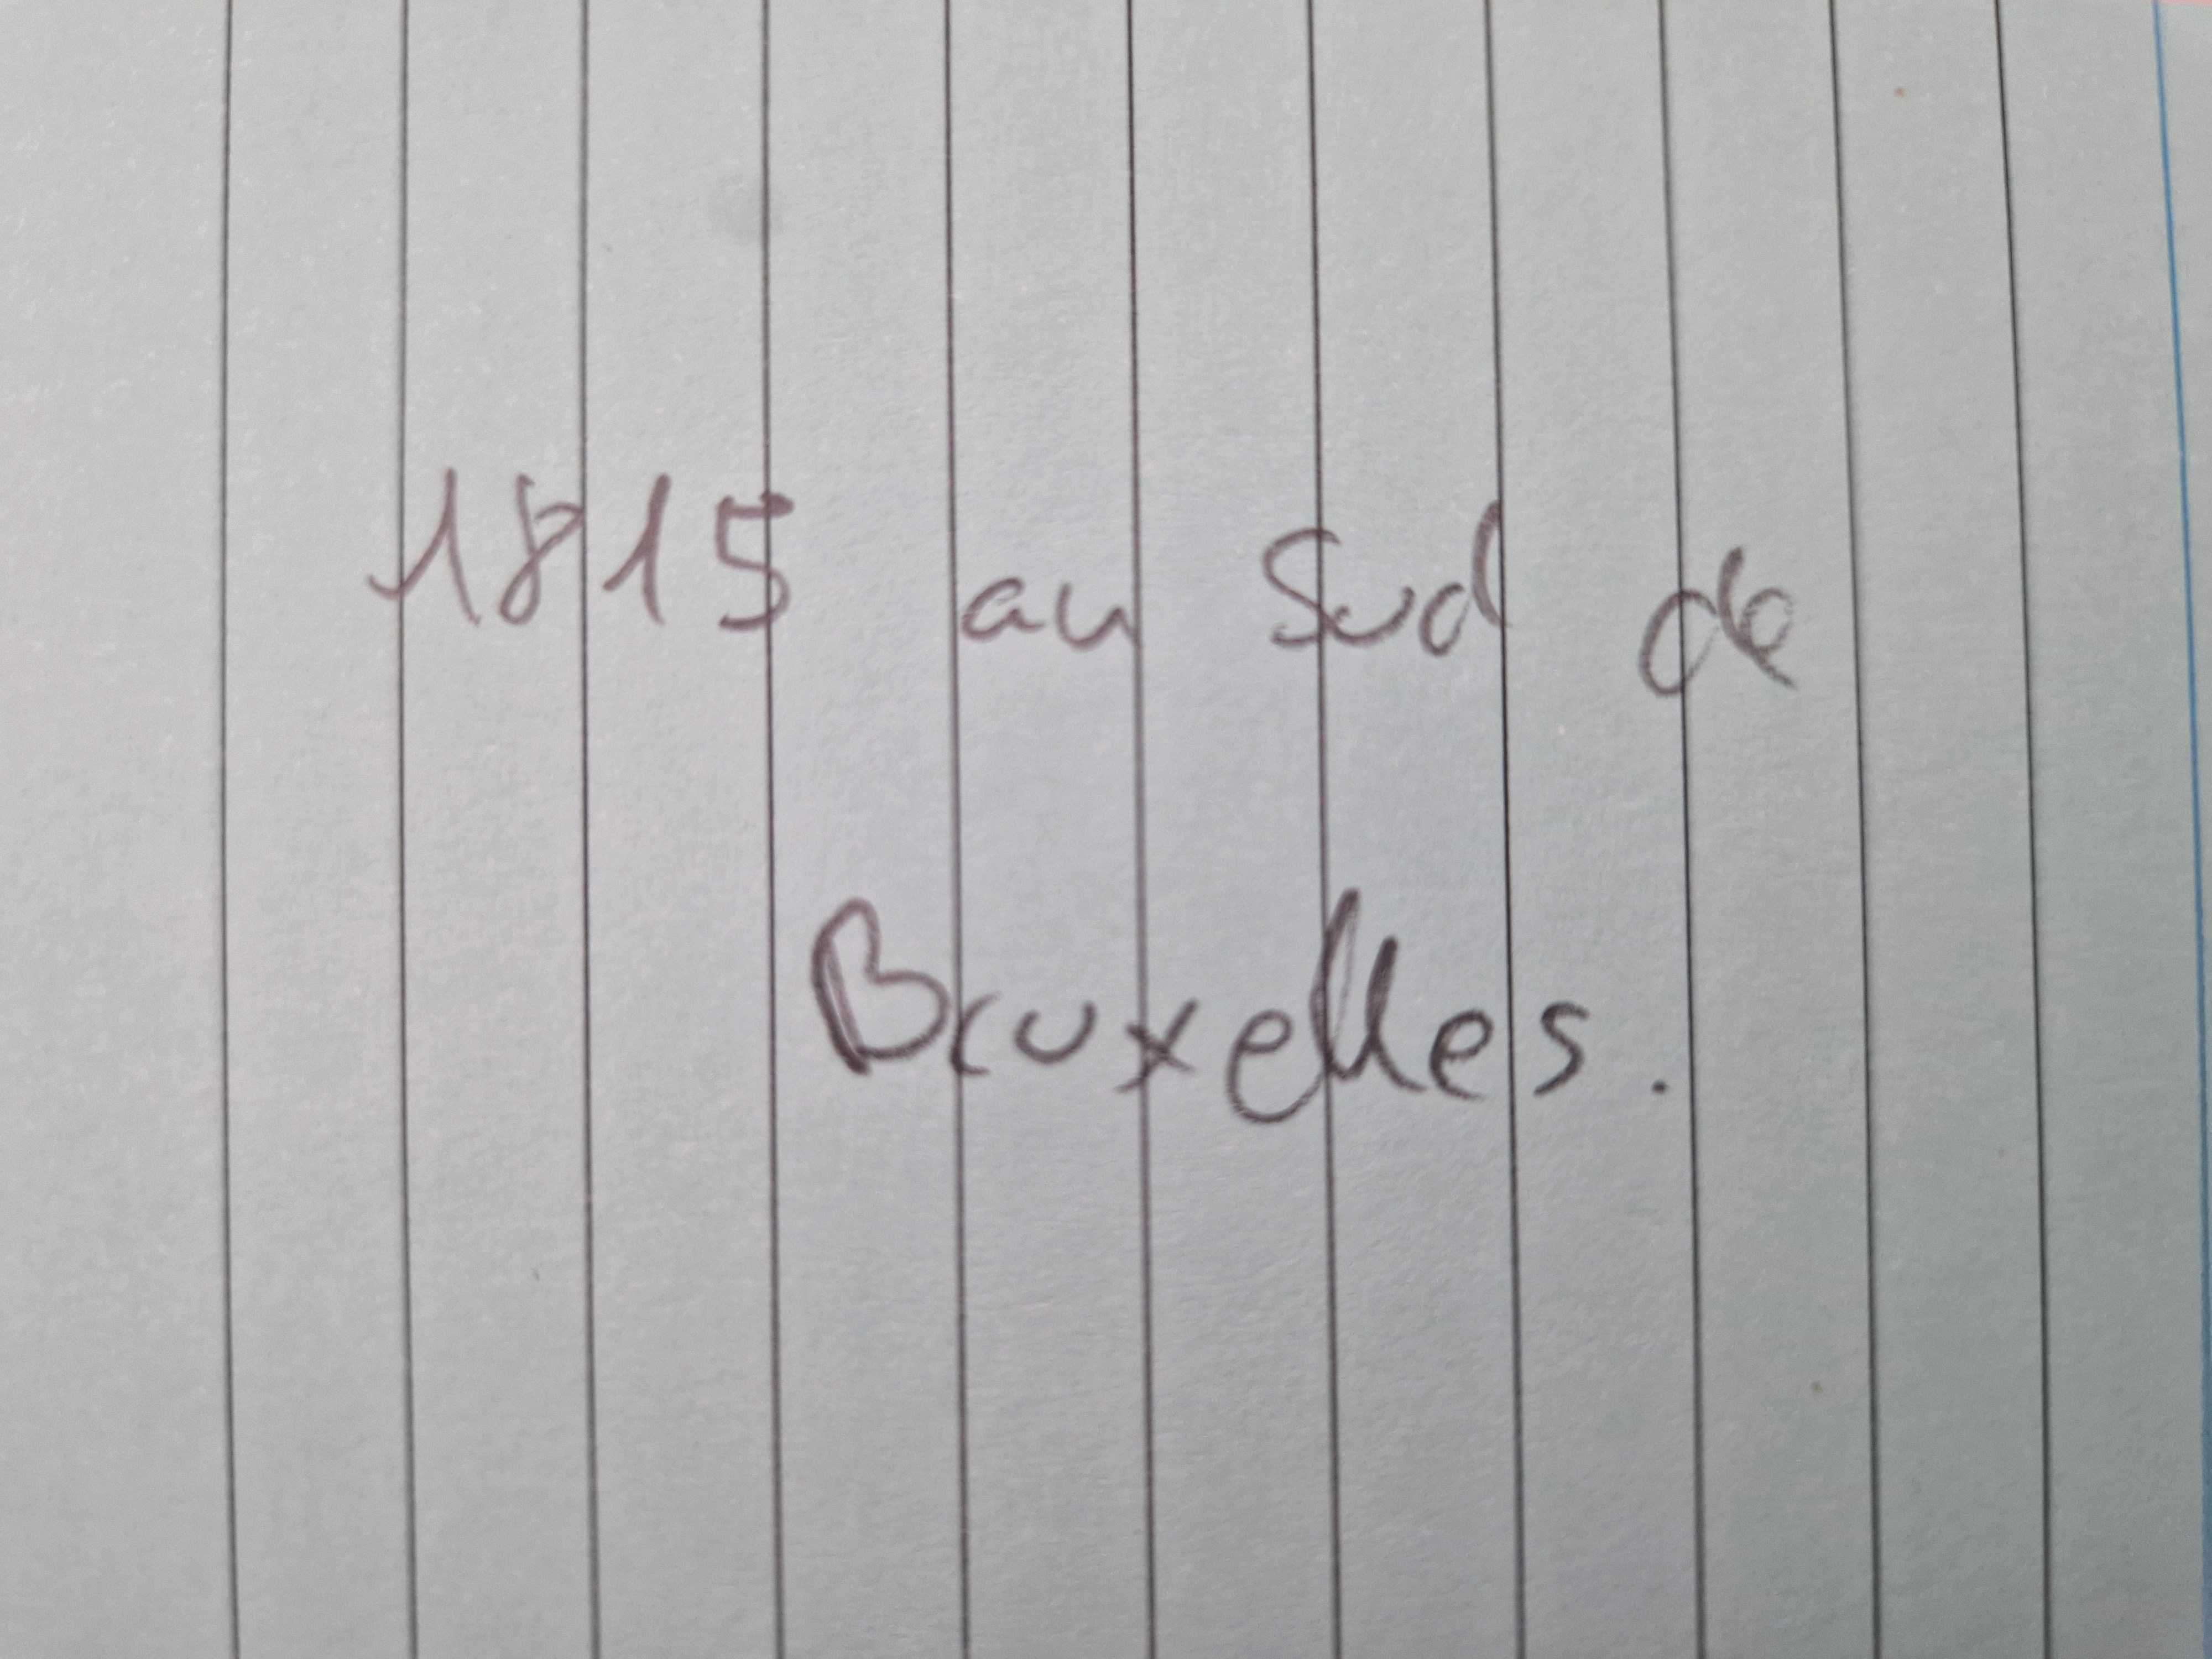 1815 au Sud de
Bruxelles.